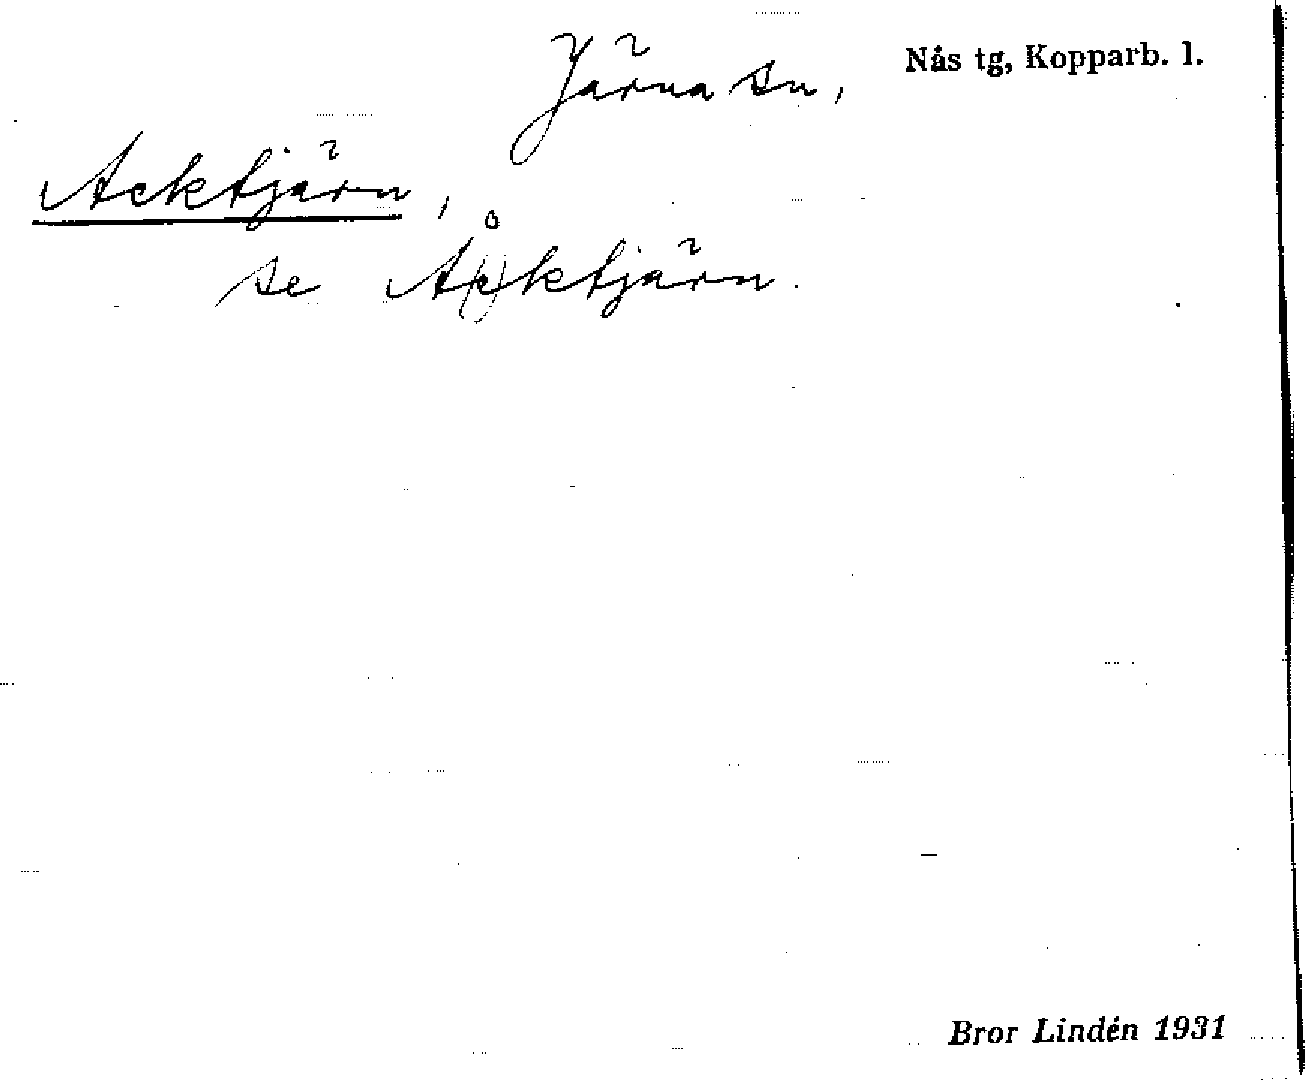 Järna sn, Nås tg, Kopparb. l.
Acktjärn,
se Å(c)ktjärn.
Bror Lindén 1931